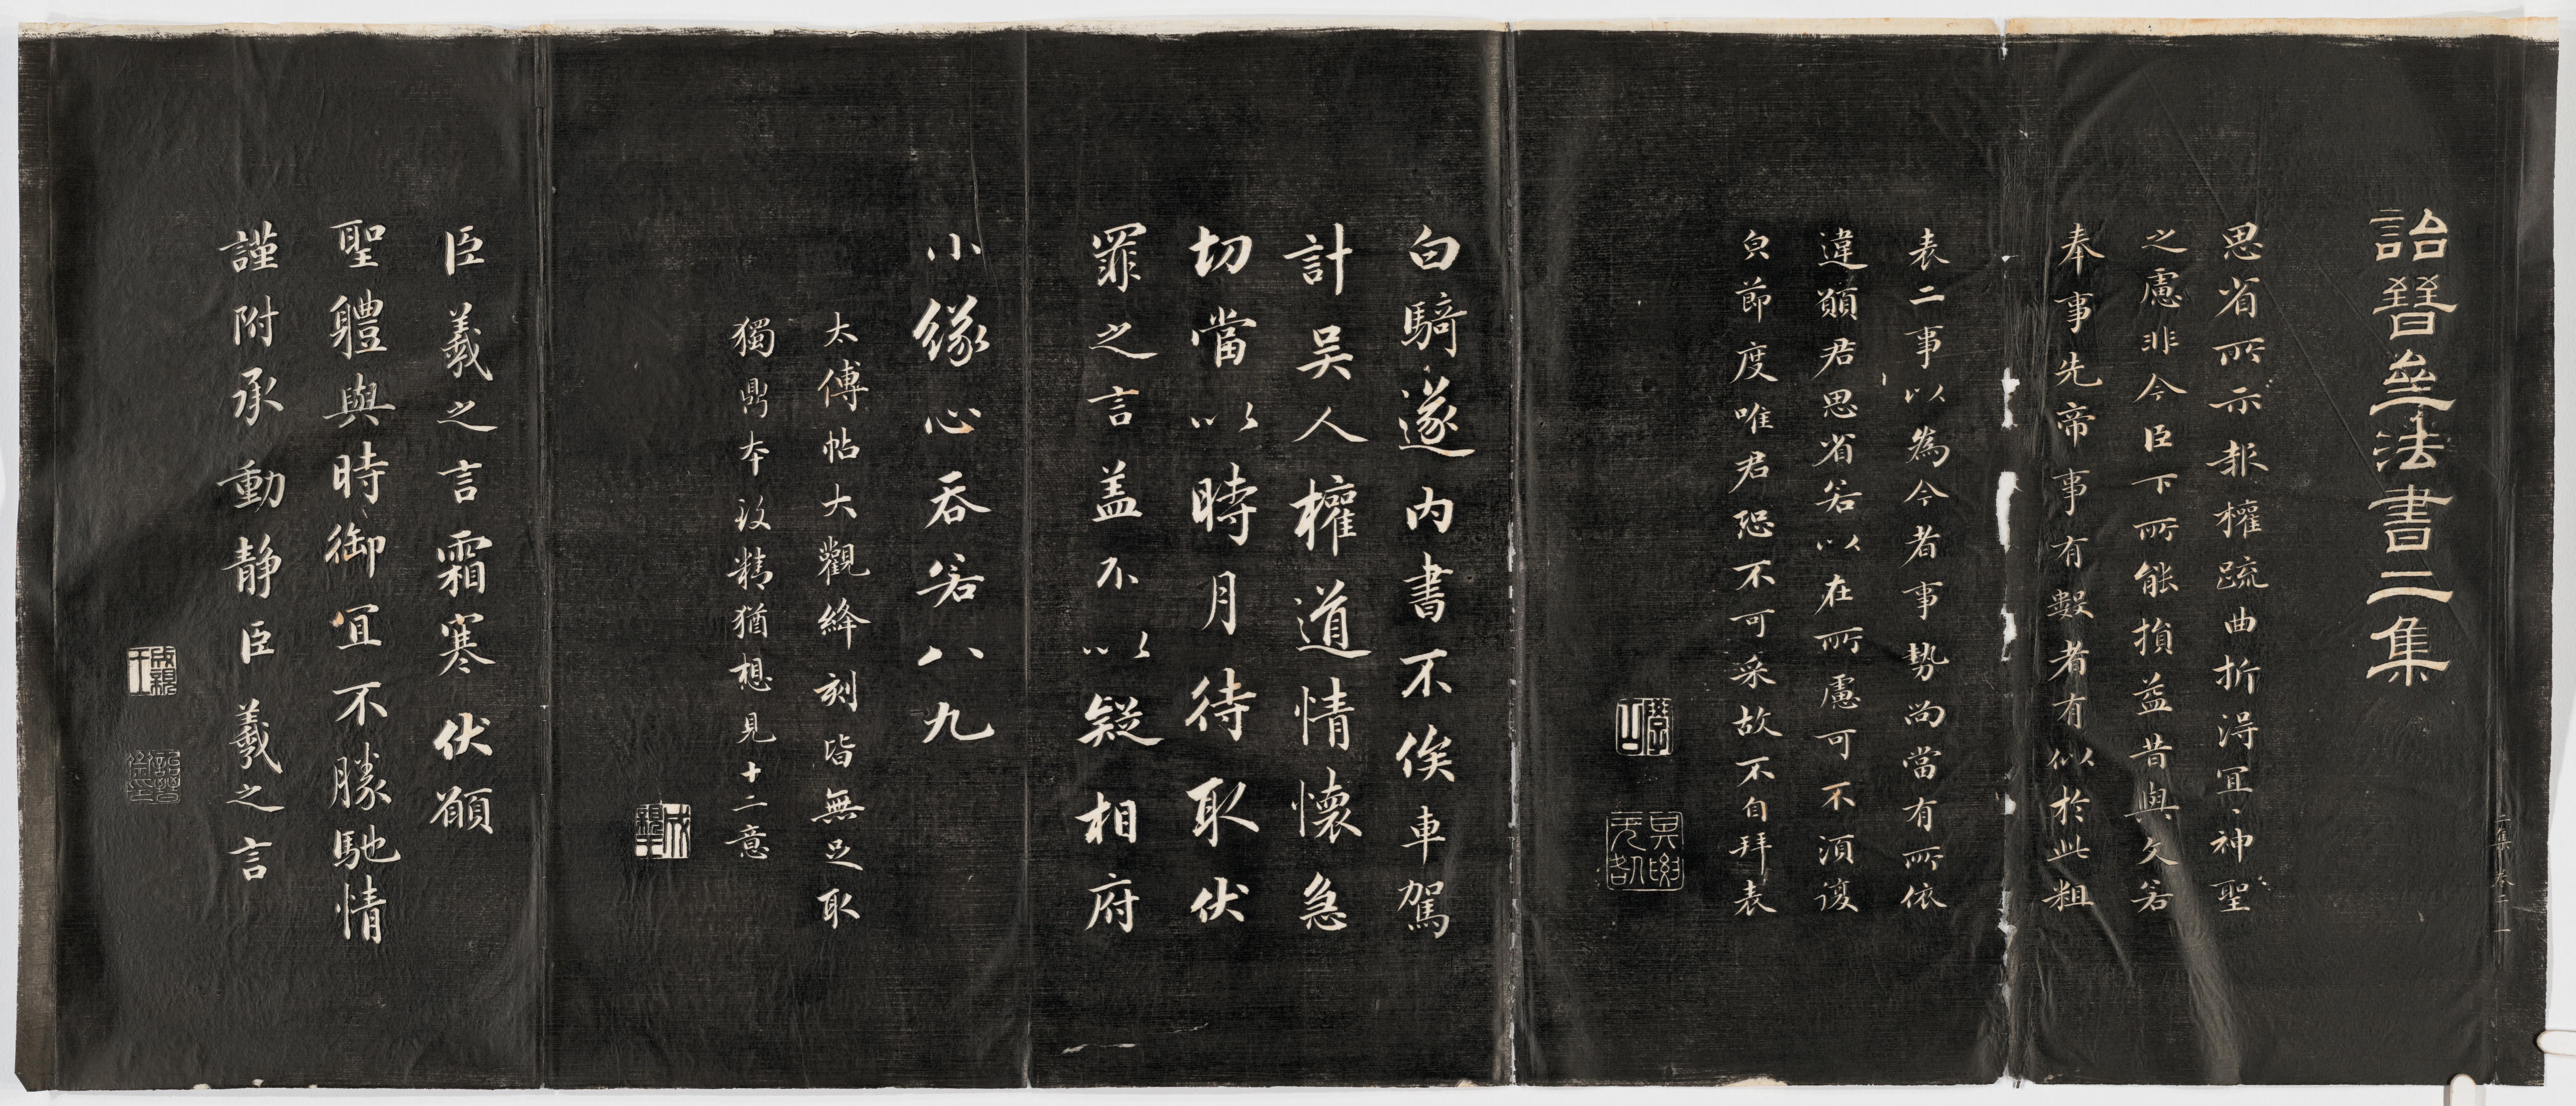 詒晉叄法書二集
思省所示報權疏曲折得宜、神聖
之慮非今臣下所能損益昔與文若
奉事先帝事有數者有似於此粗
表二事以為今者事勢尚當有所依
違願君思省若以在所慮可不須復
皃節度唯君恐不可采故不自拜表
白騎遂內書不俟車駕
計吳人權道情懷急
切當以時月待取伏
罪之言蓋不以疑相府
小緣心吞若八九
太傅帖大觀絳刻皆無足取
獨鼎本沒精猶想見十二意
成親王
臣羲之言霜寒伏願
聖體與時御宜不勝馳情
謹附承動靜臣羲之言
成親王
詒晉
二集 卷二 一